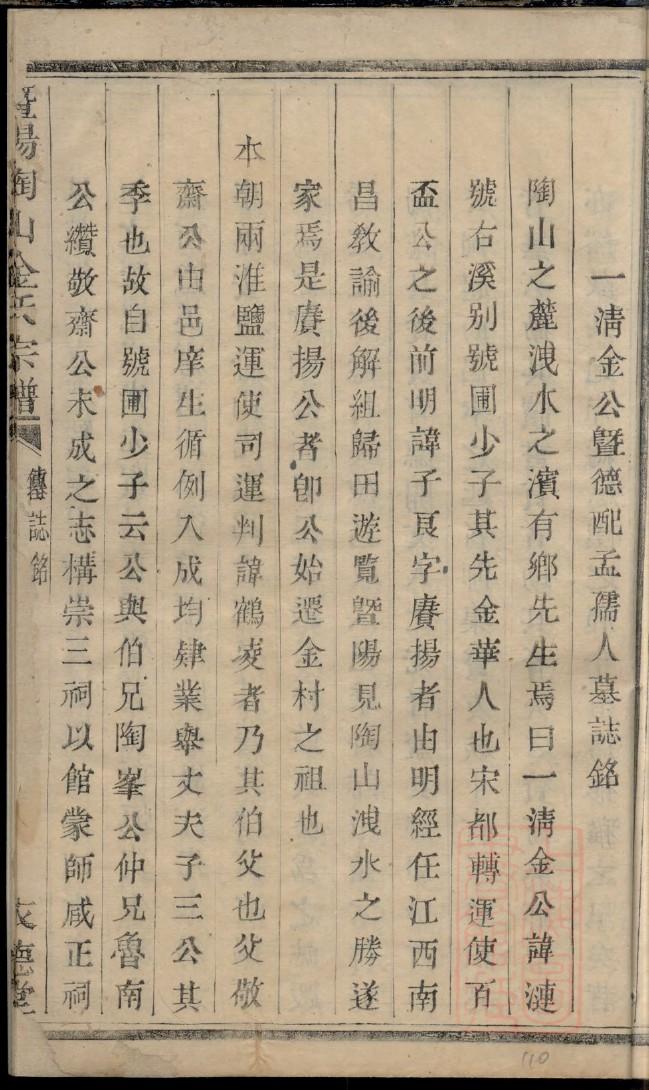 一淸金公曁德配孟孺人墓誌銘
陶山之麓洩水之濱有鄉先生焉曰一淸金公諱漣
號右溪别號圃少子其先金華人也宋都轉運使百
盃公之後前明諱子良字賡揚者由明經任江西南
昌敎諭後解組歸田遊覽曁陽見陶山洩水之勝遂
家焉是賡揚公者卽公始遷金村之祖也
本朝兩淮鹽運使司運判諱鶴凌者乃其伯父也父敬
齋公由邑庠生循例入成均肄業舉丈夫子三公其
季也故自號圃少子云公與伯兄陶峯公仲兄魯南
公纘敬齋公未成之志構崇三祠以館蒙師咸正祠
曁陽陶山金氏宗譜
傳誌銘
友德堂
110